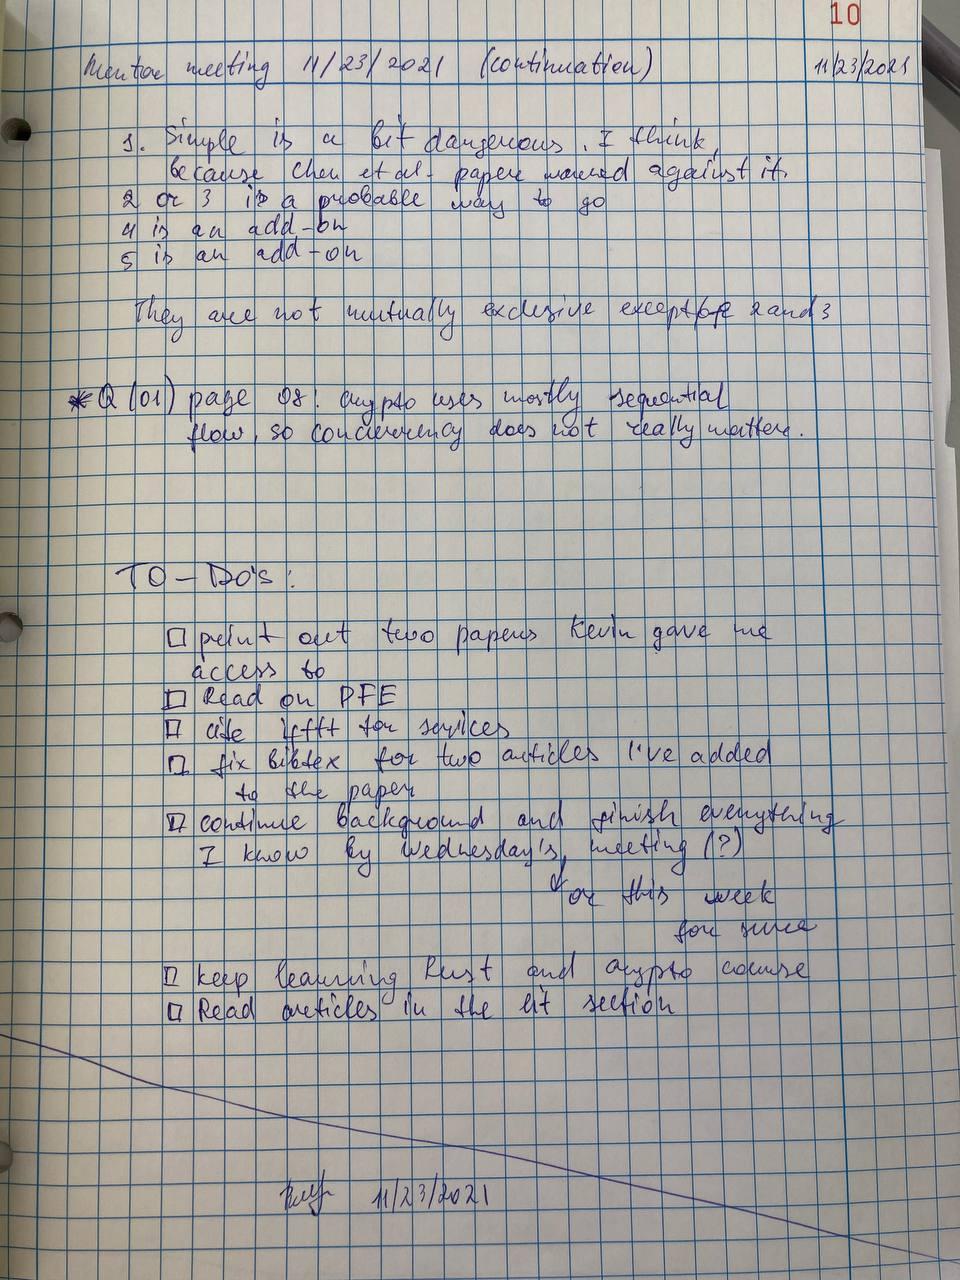 10
Mentor meeting 11/23/2021 (continuation) 11/23/2021
1. Simple is a bit dangerous, I think,
because Chen et al. paper warned against it.
2 or 3 is a probable way to go
4 is an add-on
5 is an add-on
They are not mutually exclusive except for 2 and 3
* Q (01) page 08: crypto uses mostly sequential
flow, so concurrency does not really matter.
TO-DO's:
□ print out two papers Kevin gave me
access to
□ Read on PFE
□ cite ifttt for services
□ fix bibtex for two articles I've added
to the paper
□ continue background and finish everything
I know by Wednesday's meeting (?)
or this week
for sure
□ keep learning Rust and crypto course
□ Read articles in the lit section
11/23/2021